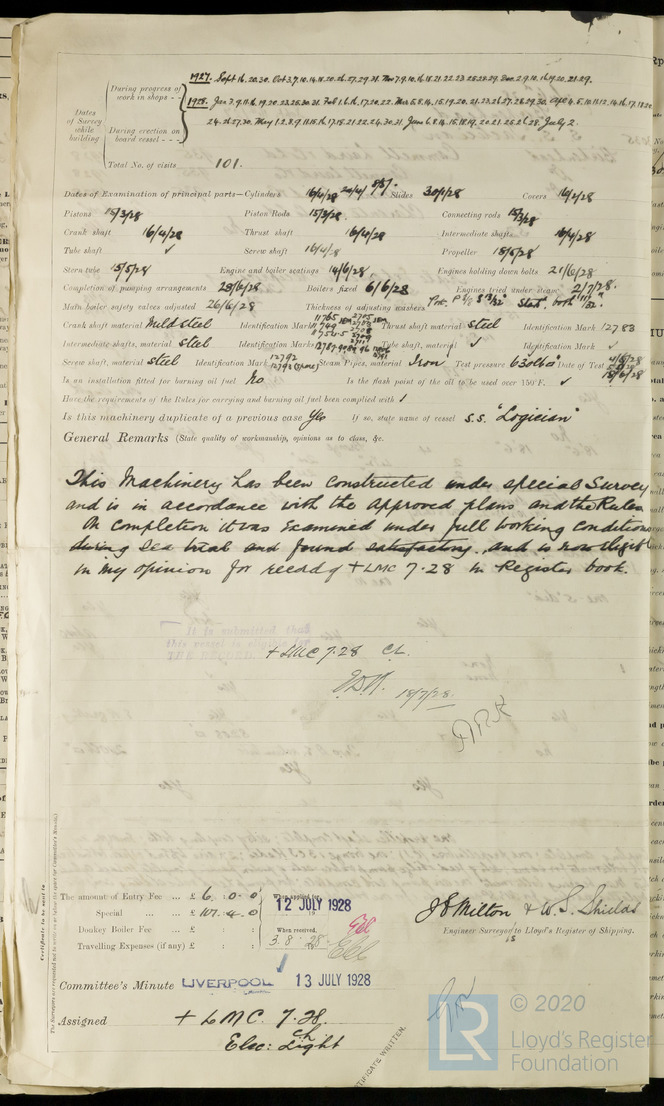 1927. Sept 16.20.30. Oct 3.7.10.14.18.20.26.27.29.31. Nov 7.9.10.16.18.21.22.23.25.26.29. Dec. 2.9.12.16.19.20.21.29.
During progress of work in shops - -
1928. Jan 7.9.11.16.19.20.23.25.30.31. Feb 1.6.16.17.20.22. Mar 5.8.14.15.19.20.21.23.26.27.28.29.30. Apr 4.5.10.11.12.14.16.17.18.20.
Dates of Survey while building
During erection on board vessel - - -
24.26.27.30. May 1.2.8.9.11.15.16.17.18.21.22.24.30.31. June 6.8.14.15.18.19.20.21.25.26.28. July 2.
Total No. of visits 101.
Dates of Examination of principal parts—Cylinders 16/4/28 24/4/ Slides 30/1/28 Covers 16/4/28
Pistons 15/3/28 Piston Rods 15/3/28. Connecting rods 15/3/28
Crank shaft 16/4/28 Thrust shaft 16/4/28 Intermediate shafts 16/4/28
Tube shaft ✓ Screw shaft 16/4/28 Propeller 15/5/28
Stern tube 15/5/28 Engine and boiler seatings 14/6/28. Engines holding down bolts 21/6/28
Completion of pumping arrangements 28/6/28 Boilers fixed 6/6/28 Engines tried under steam 2/7/28.
Main boiler safety valves adjusted 26/6/28 Thickness of adjusting washers
Crank shaft material Mild steel Identification Mark Thrust shaft material steel Identification Mark 12783
Intermediate shafts, material steel Identification Marks Tube shaft, material ✓ Identification Mark ✓
Screw shaft, material steel Identification Mark 12792 Steam Pipes, material Iron Test pressure 630 lbs Date of Test
Is an installation fitted for burning oil fuel No Is the flash point of the oil to be used over 150°F. ✓
Have the requirements of the Rules for carrying and burning oil fuel been complied with
Is this machinery duplicate of a previous case Yes If so, state name of vessel S.S. "Logician"
General Remarks (State quality of workmanship, opinions as to class, &c.
This Machinery has been constructed under special Survey
and is in accordance with the approved plans and the Rules
On completion it was examined under full working conditions
during sea trial and found satisfactory, and is now eligible
in my opinion for record of + LMC 7.28 in Register book.
It is submitted that
this vessel is eligible for
THE RECORD + LMC 7.28 CL.
18/7/28
Certificate to be sent to
The Surveyors are requested not to write on or below the space for Committee's Minute.
The amount of Entry Fee ... £ 6 . 0 . 0
Special ... £ 107.4.0
Donkey Boiler Fee ... £ : :
Travelling Expenses (if any) £ : :
When applied for,
12 JULY 1928
When received,
3.8.28
J E Milton & W.S. Shields
Engineer Surveyors to Lloyd's Register of Shipping.
Committee's Minute LIVERPOOL 13 JULY 1928
Assigned + LMC. 7.28.
CL
Elec: Light
CERTIFICATE WRITTEN.
LR
© 2020
Lloyd's Register
Foundation